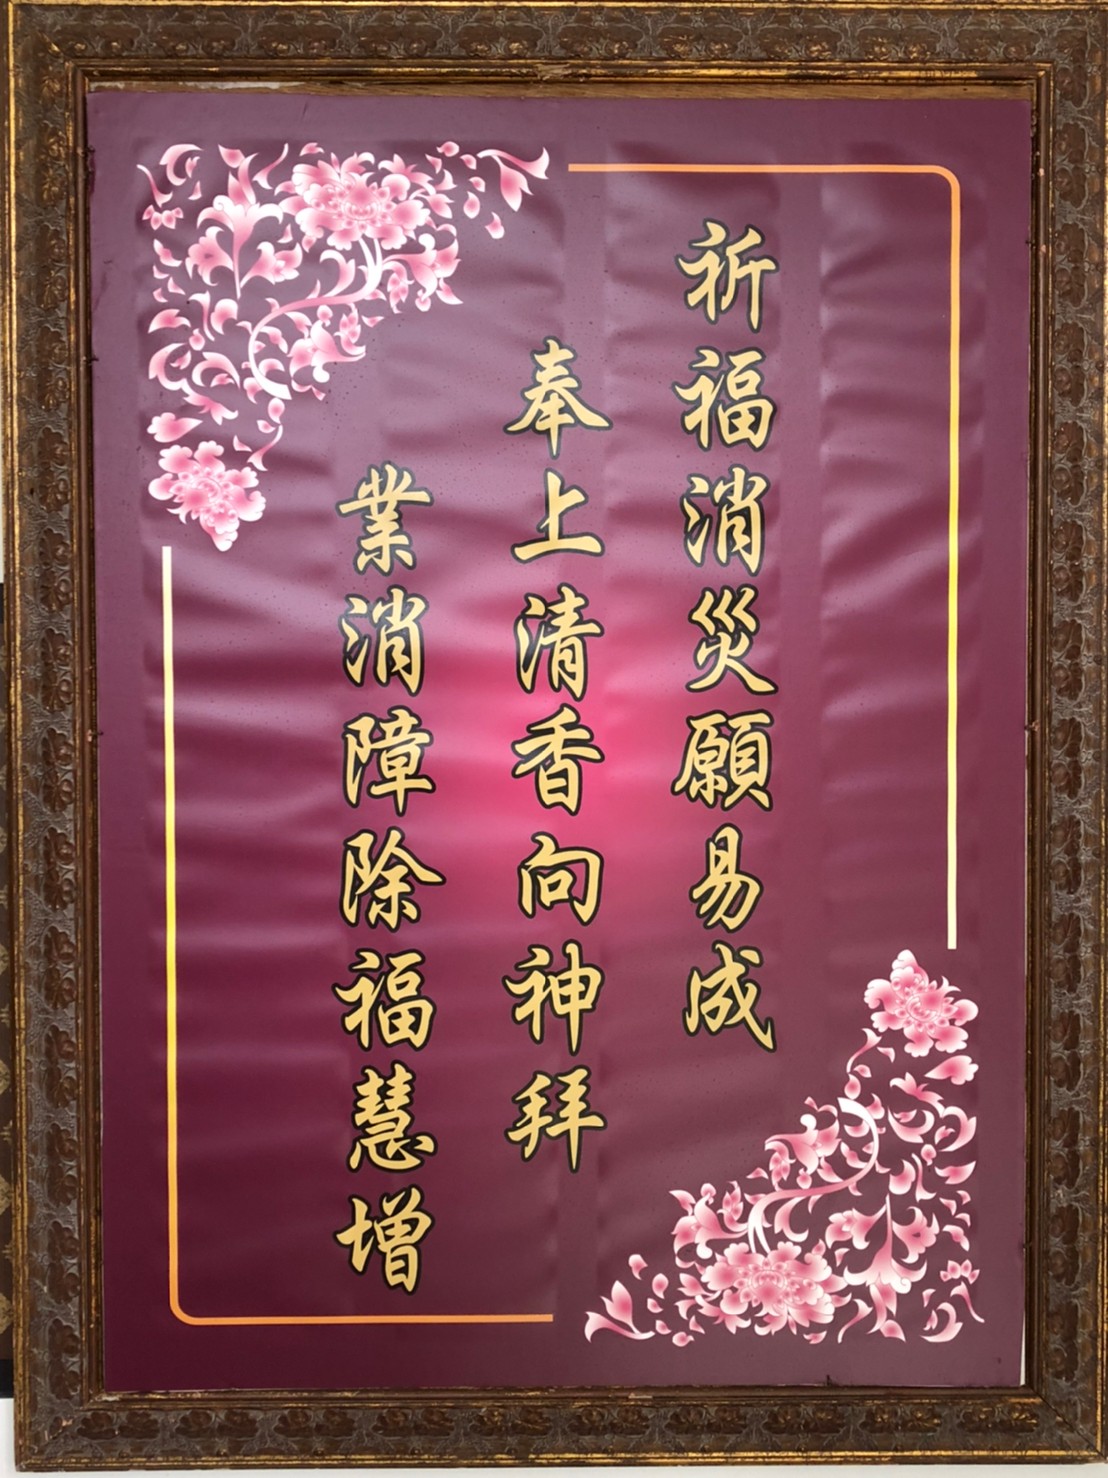 祈福消災願易成
奉上清香向神拜
業消障除福慧增